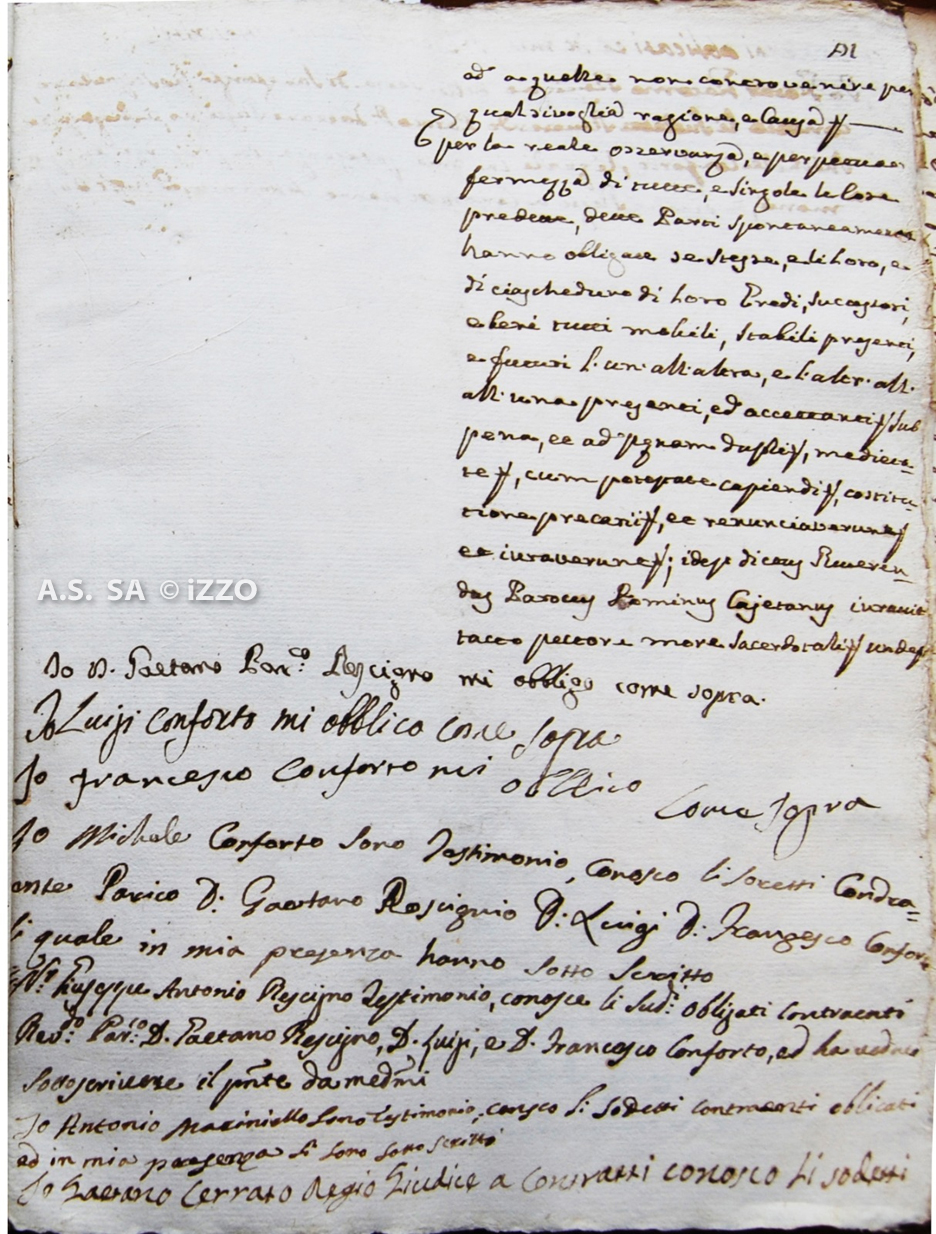 ad a quelle non controvenire per
qualsivoglia ragione, e causa
per la reale osservanza, e perpetua
fermezza di tutte, e singole le cose
predette, dette Parti spontaneamente
hanno obligate se stesse, e di loro, e
di ciascheduno di loro Eredi, successori,
e beni tutti mobili, stabili presenti,
e futuri l'un all'altra, e l'altr'all'
all'una presenti, ed accettanti sub
pena, et ad penam dupli, medieta-
te, cum potestate capiendi, costitu-
tione precarii, et renunciaverunt
et iuraverunt; idest dictus Reveren-
dus Parocus Dominus Cajetanus iuravit
tacto pectore more sacerdotali unde
Io D. Gaetano Par.co Rescigno mi obbligo come sopra.
Io Luigi Conforto mi obblico come sopra
Io Francesco Conforto mi obblico come sopra
Io Michele Conforto sono Testimonio, conosco li sodetti Condra-
ente Parico D: Gaetano Rescignio D: Luigi D: Francesco Conforto
li quale in mia presenza hanno sotto scritto
N.r Giuseppe Antonio Rescigno Testimonio, conosce li sud.i obligati contraenti
Rev.do Par.co D. Gaetano Rescigno, D. Luigi, e D. Francesco Conforto, ed ha veduto
sottoscrivere il pnte da medmi
Io Antonio Mariniello sono Testimonio, conosco li sodetti contraenti oblicati
ed in mia presenza si sono sotto scritti
Io Gaetano Cerrato Regio Giudice a Contratti conosco li sodetti
A.S. SA © iZZO